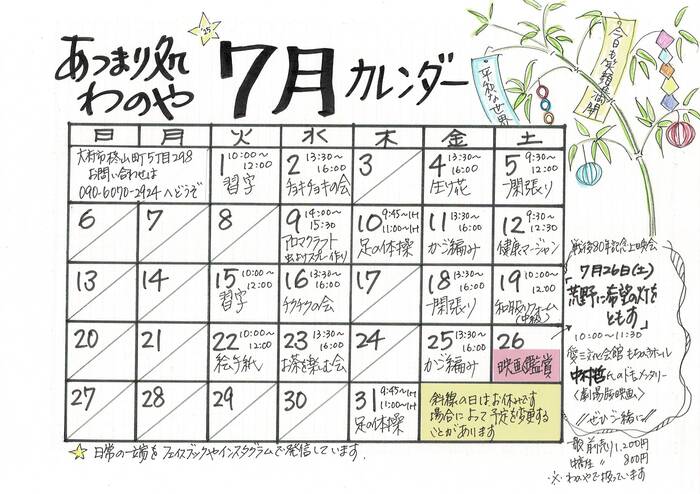 あつまり処
わのや
'25
7月 カレンダー
今日も笑顔満開
平和な世界
日 月 火 水 木 金 土
大村市
町5丁目298
お問い合わせは
090-6070-2924へどうぞ
1 10:00～12:00
習字
2 13:30～16:00
チョキチョキの会
3
4 13:30～16:00
生け花
5 9:30～12:00
一閑張り
6
7
8
9 14:00～15:30
アロマクラフト
虫よけスプレー作り
10 9:45～1H
11:00～1H
足の体操
11 13:30～16:00
かご編み
12 9:30～12:30
健康マージャン
13
14
15 10:00～12:00
習字
16 13:30～16:00
チクチクの会
17
18 13:30～16:00
一閑張り
19 10:00～12:00
和服リフォーム
20
21
22 10:00～12:00
絵手紙
23 13:30～16:00
お茶を楽む会
24
25 13:30～16:00
かご編み
26
映画鑑賞
27
28
29
30
31 9:45～1H
11:00～1H
足の体操
斜線の日はお休みです
場合によって予定を変更する
ことがあります
☆ 日常の一端をフェイスブックやインスタグラムで発信しています.
戦後80年記念上映会
7月26日(土)
「荒野に希望の灯を
ともす」
10:00～11:30
中村哲氏のドキュメンタリー
〈劇場版映画〉
ぜひご一緒に
一般 前売り1,200円
800円
※わのやで扱っています